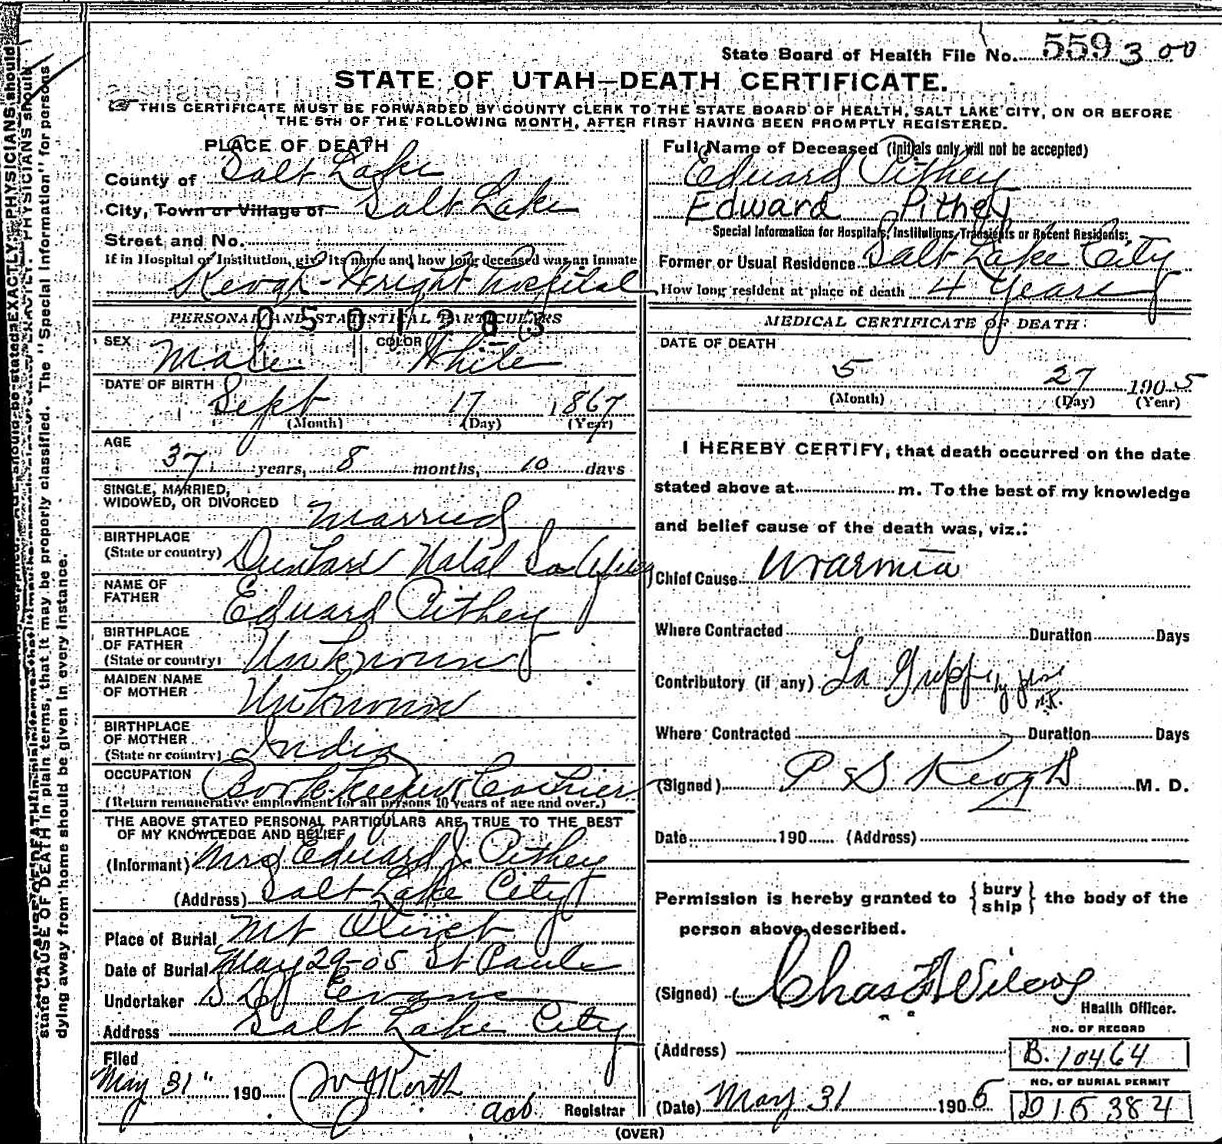 State Board of Health File No. 559 3 00
STATE OF UTAH—DEATH CERTIFICATE.
THIS CERTIFICATE MUST BE FORWARDED BY COUNTY CLERK TO THE STATE BOARD OF HEALTH, SALT LAKE CITY, ON OR BEFORE
THE 5TH OF THE FOLLOWING MONTH, AFTER FIRST HAVING BEEN PROMPTLY REGISTERED.
PLACE OF DEATH
County of Salt Lake
City, Town or Village of Salt Lake
Street and No.
If in Hospital or Institution, give its name and how long deceased was an inmate
Keogh-Wright hospital
PERSONAL AND STATISTICAL PARTICULARS
0501283
SEX Male COLOR White
DATE OF BIRTH Sept 17 1867
(Month) (Day) (Year)
AGE 37 years, 8 months, 10 days
SINGLE, MARRIED,
WIDOWED, OR DIVORCED Married
BIRTHPLACE
(State or country) Natal So Africa
NAME OF
FATHER Eduard Pithey
BIRTHPLACE
OF FATHER
(State or country) Unknown
MAIDEN NAME
OF MOTHER Unknown
BIRTHPLACE
OF MOTHER
(State or country) India
OCCUPATION Bookkeeper Cashier
(Return remunerative employment for all persons 10 years of age and over.)
THE ABOVE STATED PERSONAL PARTICULARS ARE TRUE TO THE BEST
OF MY KNOWLEDGE AND BELIEF
(Informant) Mrs Eduard J. Pithey
(Address) Salt Lake City
Place of Burial Mt Olivet
Date of Burial May 29-05 St Pauls
Undertaker Evans
Address Salt Lake City
Filed
May 31" 190
Registrar
Full Name of Deceased (Initials only will not be accepted)
Eduard Pithey
Edward Pithey
Special Information for Hospitals, Institutions, Transients or Recent Residents:
Former or Usual Residence Salt Lake City
How long resident at place of death 4 Years
MEDICAL CERTIFICATE OF DEATH
DATE OF DEATH
5 27 1905
(Month) (Day) (Year)
I HEREBY CERTIFY, that death occurred on the date
stated above at m. To the best of my knowledge
and belief cause of the death was, viz.:
Chief Cause Uraemia
Where Contracted Duration Days
Contributory (if any) La Grippe
Where Contracted Duration Days
(Signed) P S Keogh M. D.
Date 190 (Address)
Permission is hereby granted to { bury ship } the body of the
person above described.
(Signed) Chas
Health Officer.
NO. OF RECORD
(Address) B. 10464
NO. OF BURIAL PERMIT
(Date) May 31 190
(OVER)
state CAUSE OF DEATH in plain terms, that it may be properly classified. The "Special Information" for persons
dying away from home should be given in every instance.